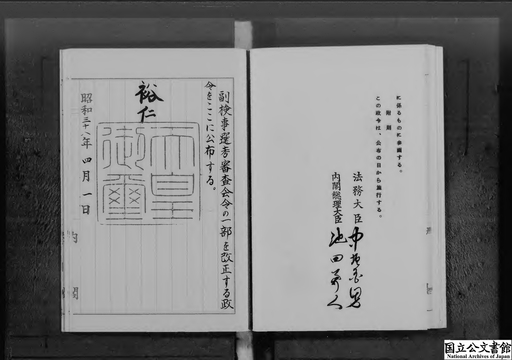 に係るものに参画する。
附則
この政令は、公布の日から施行する。
法務大臣 中垣國男
内閣総理大臣 池田勇人
副検事選考審査会令の一部を改正する政
令をここに公布する。
裕仁
天皇
御璽
昭和三十八年四月一日
内閣
国立公文書館
National Archives of Japan